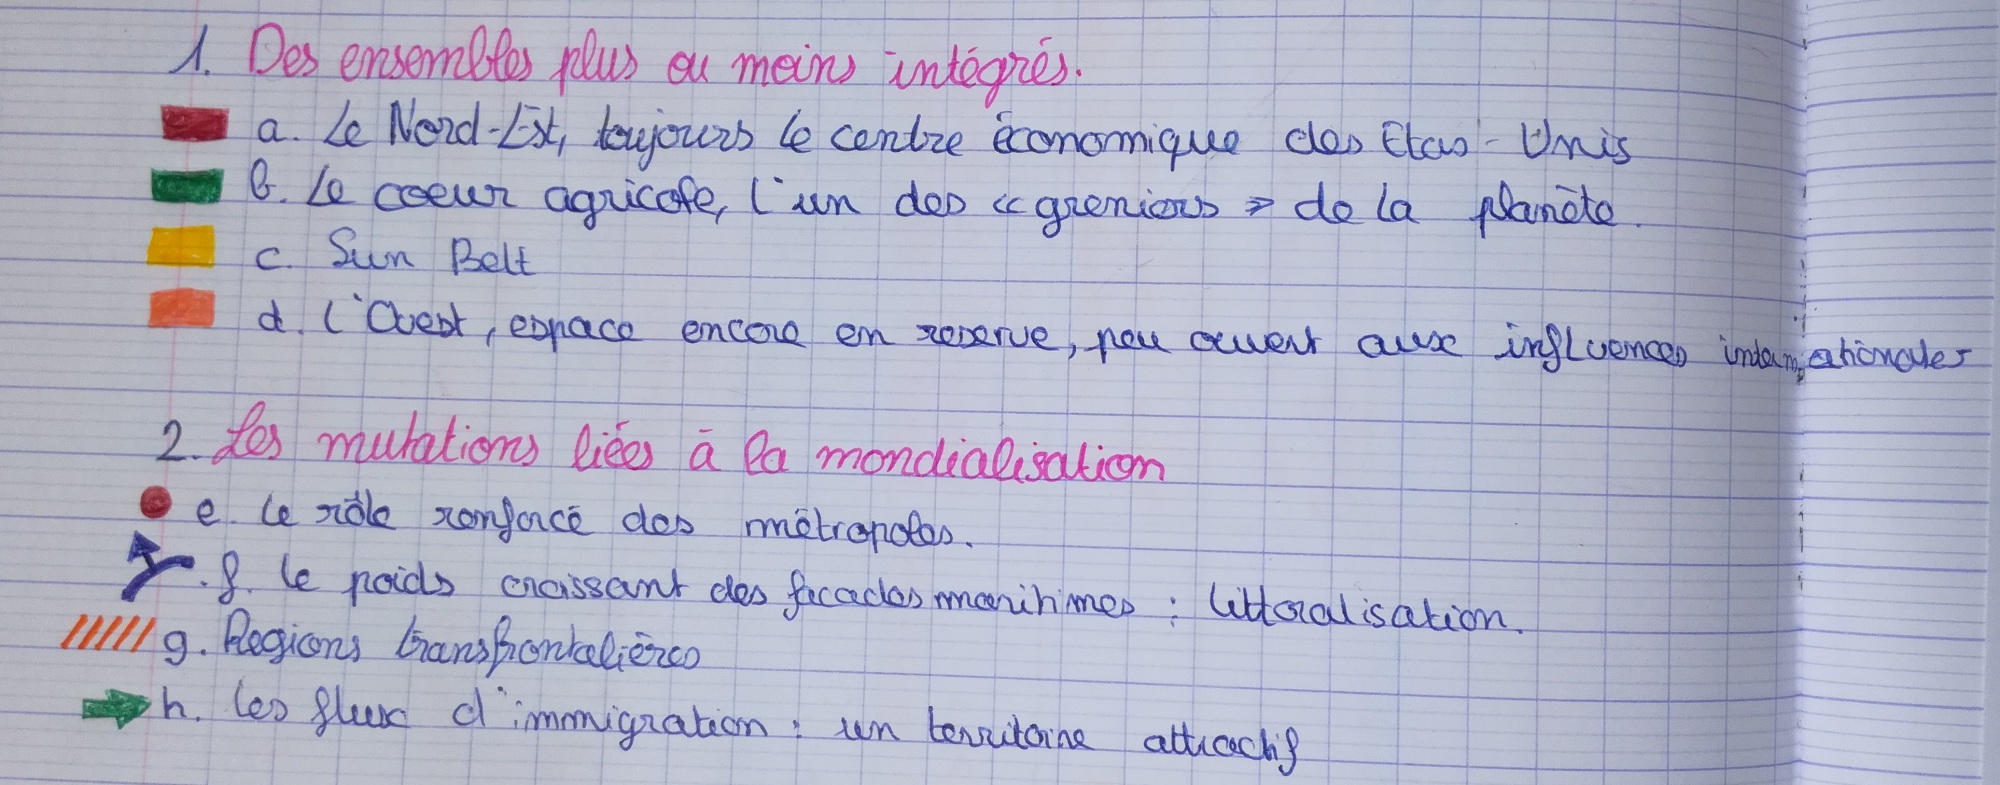 1. Des ensembles plus ou moins intégrés.
a. Le Nord-Est, toujours le centre économique des Etas-Unis
b. Le coeur agricole, l'un des « greniers » de la planète.
c. Sun Belt
d. L'Ouest, espace encore en reserve, peu ouvert aux influences internationales
2. Les mutations liées à la mondialisation
e. Le rôle renforcé des métropoles.
f. Le poids croissant des facades maritimes : littoralisation.
g. Regions transfrontalières
h. Les flux d'immigration : un territoire attractif